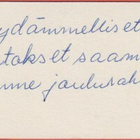 ydämmelliset
tokset saam
mme joulurah